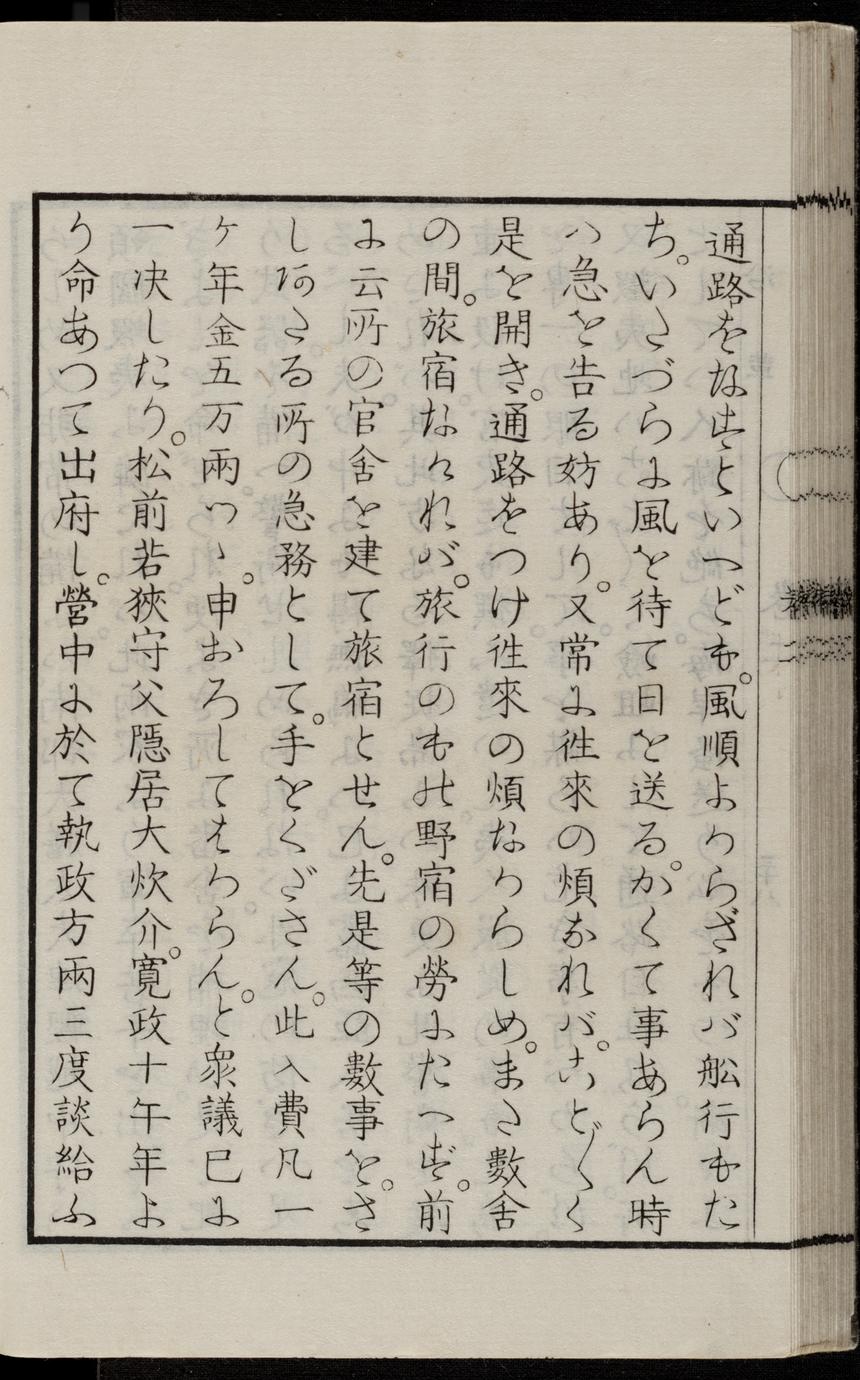 通路をなすといへども。風順よからざれバ舩行もた
ち。いたづらに風を待て日を送る。かくて事あらん時
ハ急を告る妨あり。又常に徃來の煩あれバ。こと〴〵く
是を開き。通路をつけ徃來の煩なからしめ。また數舍
の間。旅宿なけれバ。旅行のもの野宿の勞にたへず。前
に云所の官舍を建て旅宿とせん。先是等の數事を。さ
しあたる所の急務として。手をくださん。此入費凡一
ケ年金五万兩ツヽ。申おろしてはからん。と衆議已に
一决したり。松前若狹守父隱居大炊介。寛政十午年よ
り命あつて出府し。營中に於て執政方兩三度談給ふ